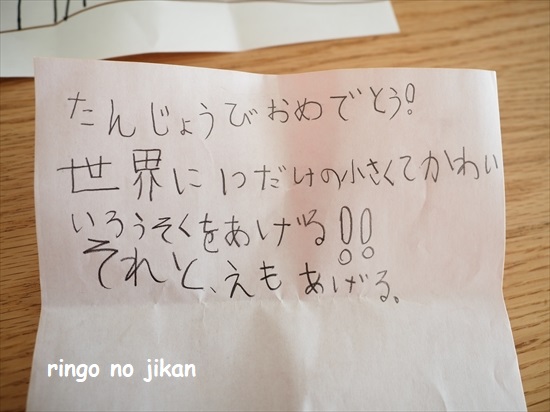 たんじょうびおめでとう!
世界に1つだけの小さくてかわい
いろうそくをあげる!!
それと、えもあげる。
ringo no jikan